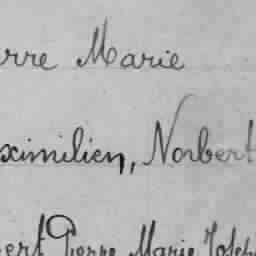 rre Marie
ximilien, Norbert
bert Pierre Marie Joseph